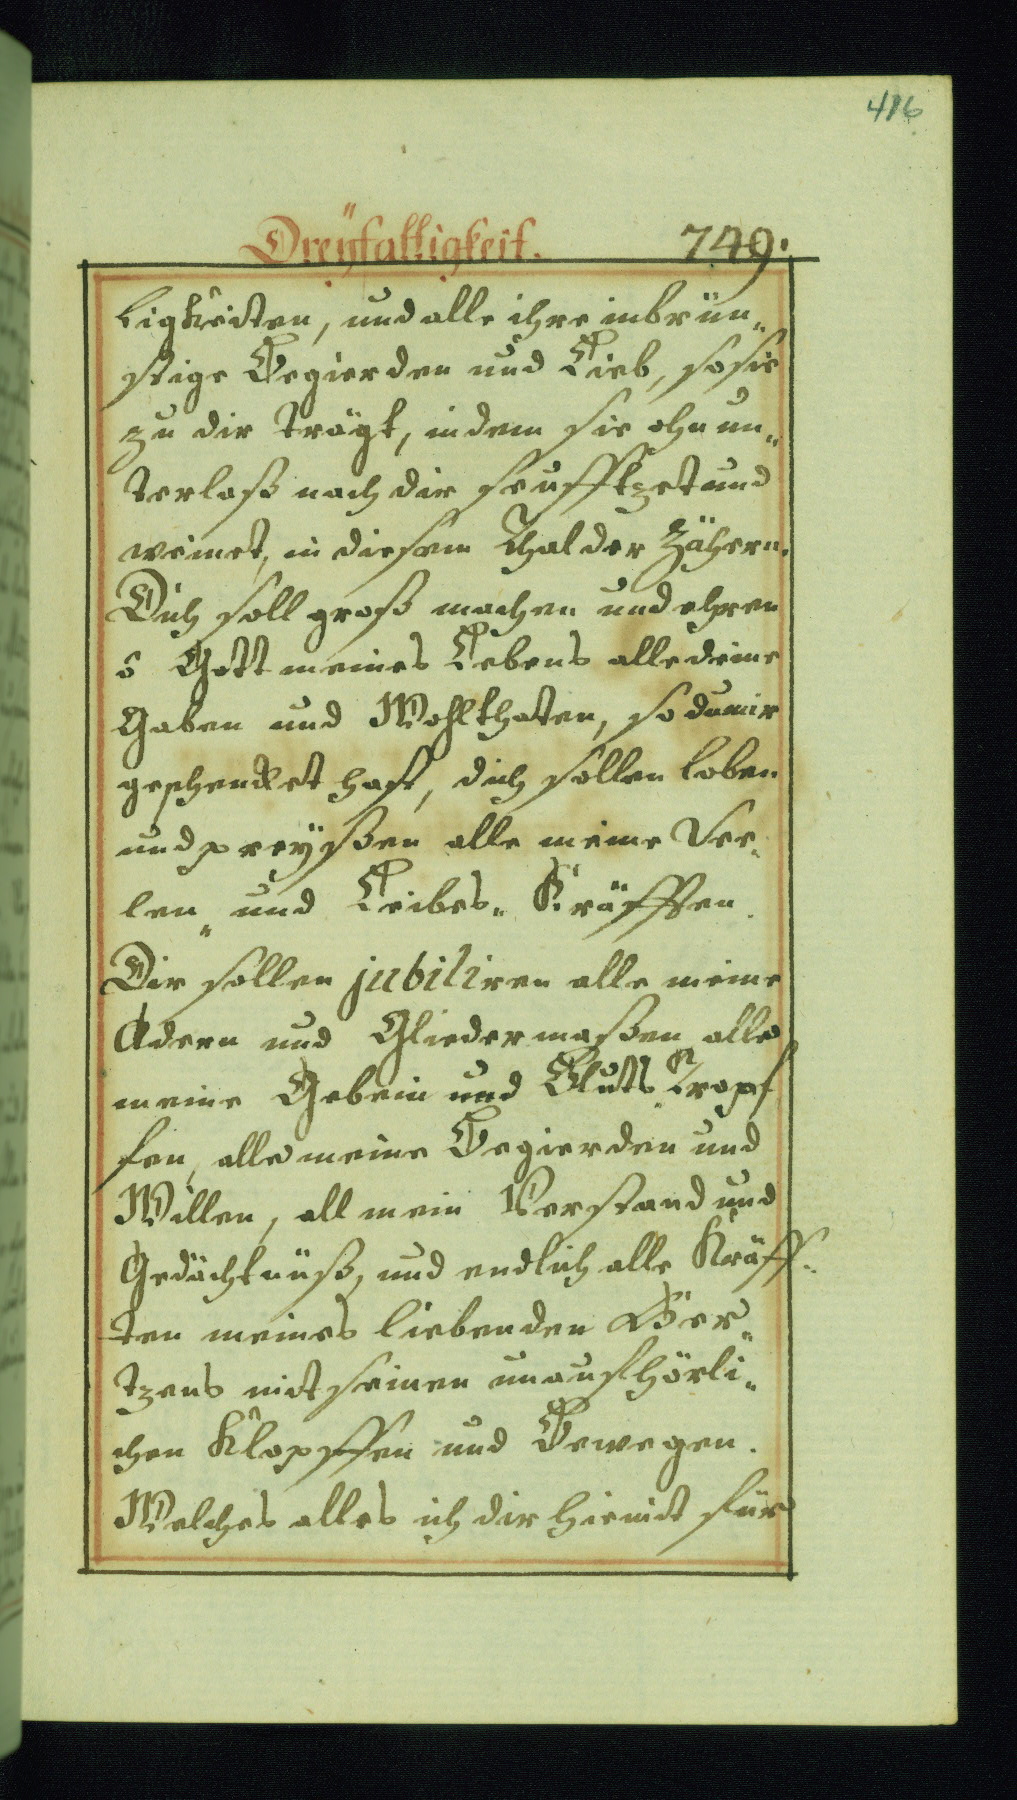 416
Dreÿfaltigkeit. 749.
ligkeiten, und alle ihre inbrün„
stige Begierden und Lieb, so sie
zu dir trägt, indem sie ohn un„
terlaß nach dir seufftzet und
weinet, in diesem Thal der Zähern.
Dich soll groß machen und ehren
ô Gott meines Lebens alle deine
Gaben und Wohlthaten, so du mir
geschencket hast, dich sollen loben
und preÿßen alle meine See„
len„ und Leibes„ Kräfften.
Dir sollen jubiliren alle meine
Adern und Gliedermaßen alle
meine Gebein und Bluts Tropf
fen, alle meine Begierden und
Willen, all mein Verstand und
Gedächtnüß, und endlich alle Kräff„
ten meines liebenden Her„
tzens mit seinen unaufhörli„
chen Klopffen und Bewegen.
Welches alles ich dir hiemit für